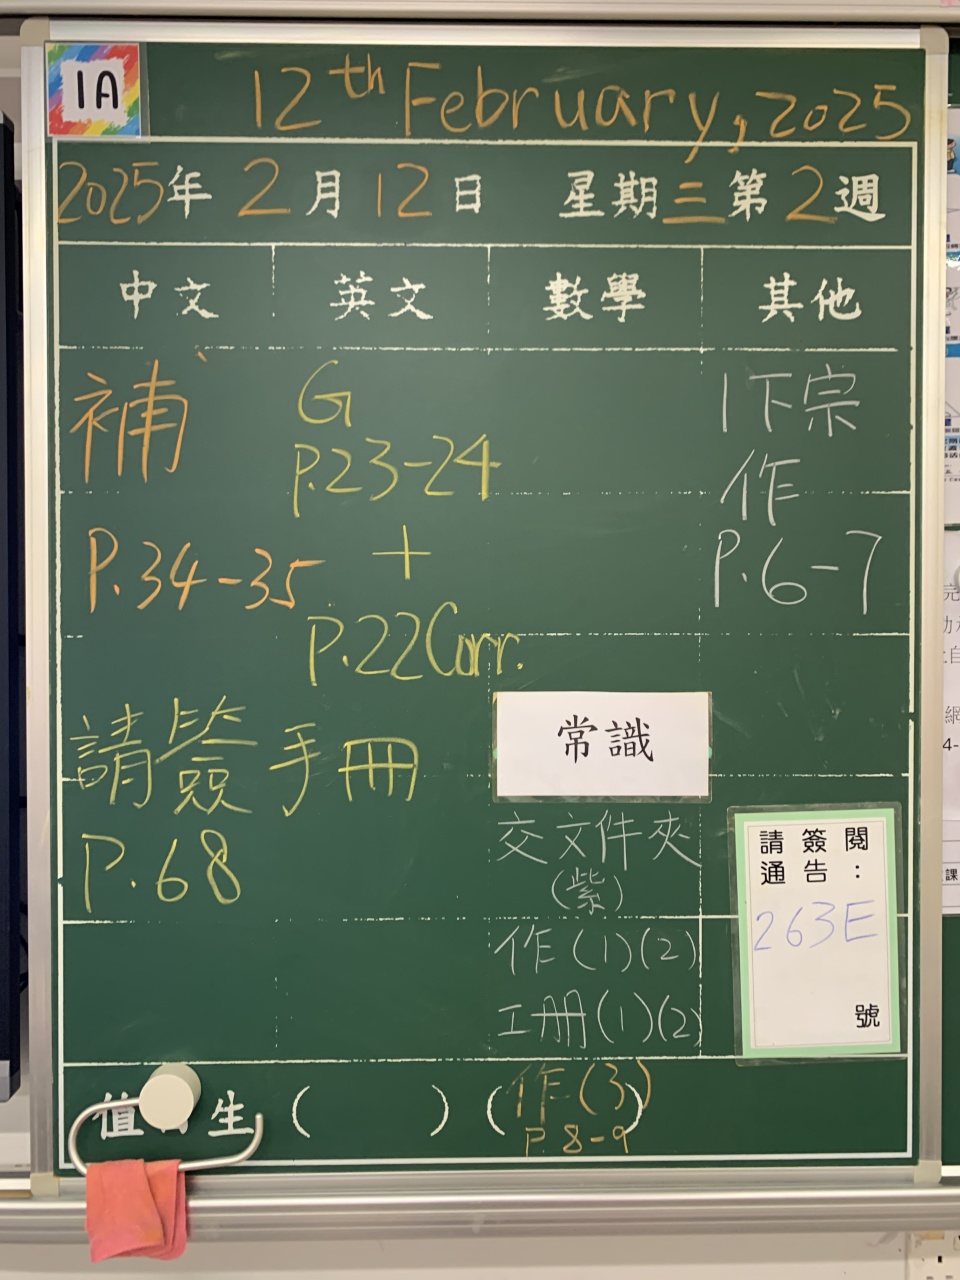 1A
12th February, 2025
2025年 2月 12日 星期三第2週
中文 英文 數學 其他
補
P.34-35
請簽手冊
P.68
G
P.23-24
+
P.22Corr.
宗
作
P.6-7
常識
交文件夾
(紫)
作(1)(2)
工冊(1)(2)
作(3)
P.8-9
請簽閱
通告:
263E
號
值 生 ( ) ( )